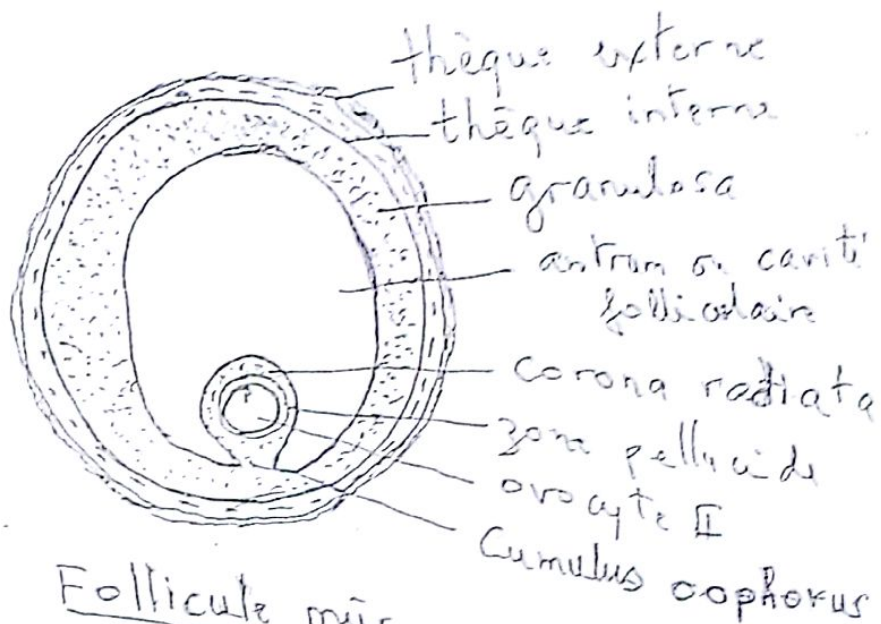 thèque externe
thèque interne
granulosa
antrum ou cavité
folliculaire
corona radiata
zone pellucide
ovocyte II
Cumulus oophorus
Follicule mûr